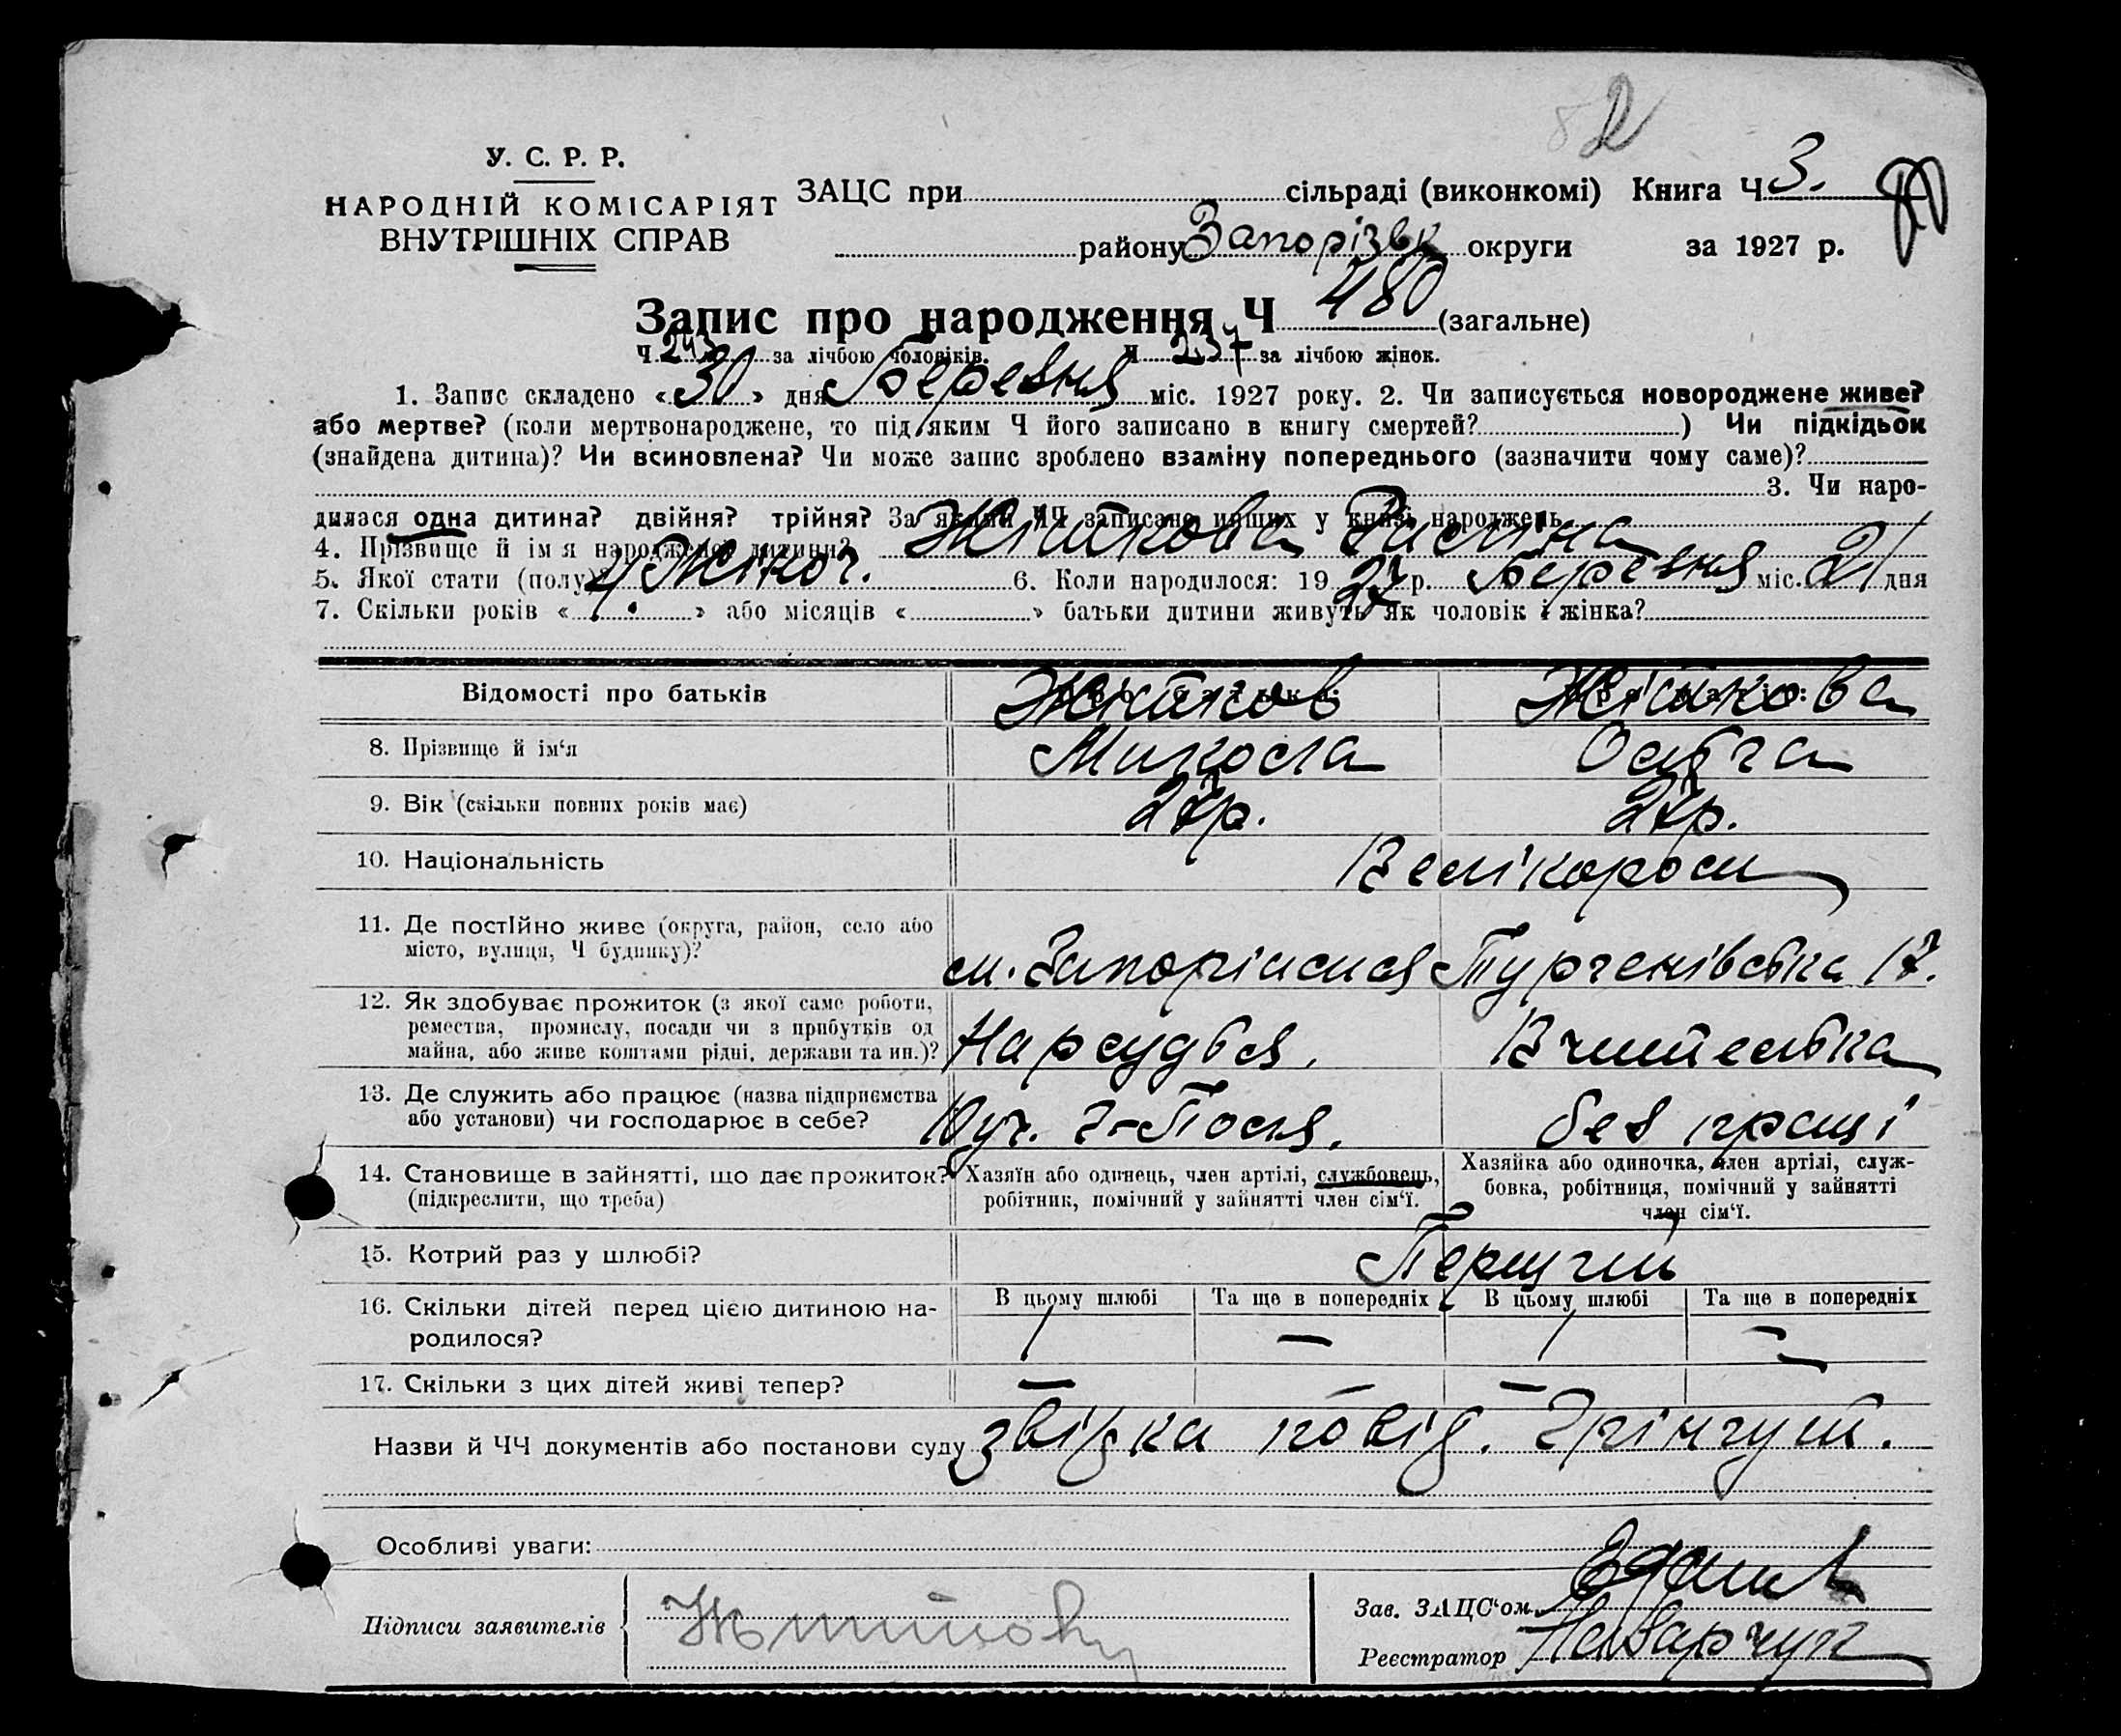 У. С. Р. Р.
НАРОДНІЙ КОМІСАРІЯТ
ВНУТРІШНІХ СПРАВ
ЗАЦС при сільраді (виконкомі) Книга Ч 3.
району Запорізьк округи за 1927 р.
Запис про народження Ч 480 (загальне)
Ч 243 за лічбою чоловіків. Ч 237 за лічбою жінок.
1. Запис складено «30» дня Березня міс. 1927 року. 2. Чи записується новороджене живе?
або мертве? (коли мертвонароджене, то під яким Ч його записано в книгу смертей? ) Чи підкідьок
(знайдена дитина)? Чи всиновлена? Чи може запис зроблено взаміну попереднього (зазначити чому саме)?
3. Чи наро-
дилася одна дитина? двійня? трійня? За якими ЧЧ записано инших у книзі народжень
4. Прізвище й ім'я народженої дитини? Жіткова
5. Якої стати (полу)? Жіноч. 6. Коли народилося: 1927 р. Березня міс. 21 дня
7. Скільки років « » або місяців « » батьки дитини живуть як чоловік і жінка?
Відомості про батьків
Жітков Жіткова
8. Прізвище й ім'я Микола Ольга
9. Вік (скільки повних років має) 27р. 27р.
10. Національність Велікороси
11. Де постійно живе (округа, район, село або
місто, вулиця, Ч будинку)? м. Запоріжжя Тургенівська 17.
12. Як здобуває прожиток (з якої саме роботи,
ремества, промислу, посади чи з прибутків од
майна, або живе коштами рідні, держави та ин.)? Нарсудья, Вчителька
13. Де служить або працює (назва підприємства
або установи) чи господарює в себе? без праці
14. Становище в зайнятті, що дає прожиток?
(підкреслити, що треба)
Хазяїн або одинець, член артілі, службовець,
робітник, помічний у зайнятті член сім'ї.
Хазяйка або одиночка, член артілі, служ-
бовка, робітниця, помічний у зайнятті
член сім'ї.
15. Котрий раз у шлюбі? Перший
16. Скільки дітей перед цією дитиною на-
родилося?
В цьому шлюбі Та ще в попередніх В цьому шлюбі Та ще в попередніх
1 — 1 —
17. Скільки з цих дітей живі тепер? — — —
Назви й ЧЧ документів або постанови суду
Особливі уваги:
Підписи заявителів
Зав. ЗАЦС'ом
Реєстратор